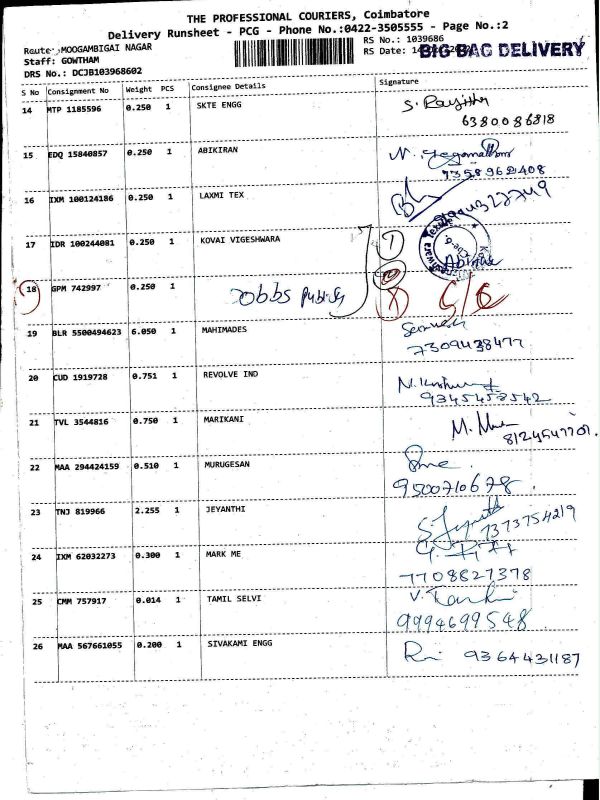 THE PROFESSIONAL COURIERS, Coimbatore
Delivery Runsheet - PCG - Phone No.:0422-3505555 - Page No.:2
Route: MOOGAMBIGAI NAGAR
RS No.: 1039686
Staff: GOWTHAM
RS Date:
BIG BAG DELIVERY
DRS No.: DCJB103968602
S No Consignment No Weight PCS Consignee Details Signature
14 MTP 1185596 0.250 1 SKTE ENGG
6380086818
15 EDQ 15840857 0.250 1 ABIKIRAN
7358962408
16 IXM 100124186 0.250 1 LAXMI TEX
17 IDR 100244081 0.250 1 KOVAI VIGESHWARA
18 GPM 742997 0.250 1
19 BLR 5500494623 6.050 1 MAHIMADES
7309438477
20 CUD 1919728 0.751 1 REVOLVE IND
9345458542
21 TVL 3544816 0.750 1 MARIKANI
8124547701.
22 MAA 294424159 0.510 1 MURUGESAN
9500710678.
23 TNJ 819966 2.255 1 JEYANTHI
7373754219
24 IXM 62032273 0.300 1 MARK ME
7708827378
25 CMM 757917 0.014 1 TAMIL SELVI
9994699548
26 MAA 567661055 0.200 1 SIVAKAMI ENGG
9364431187